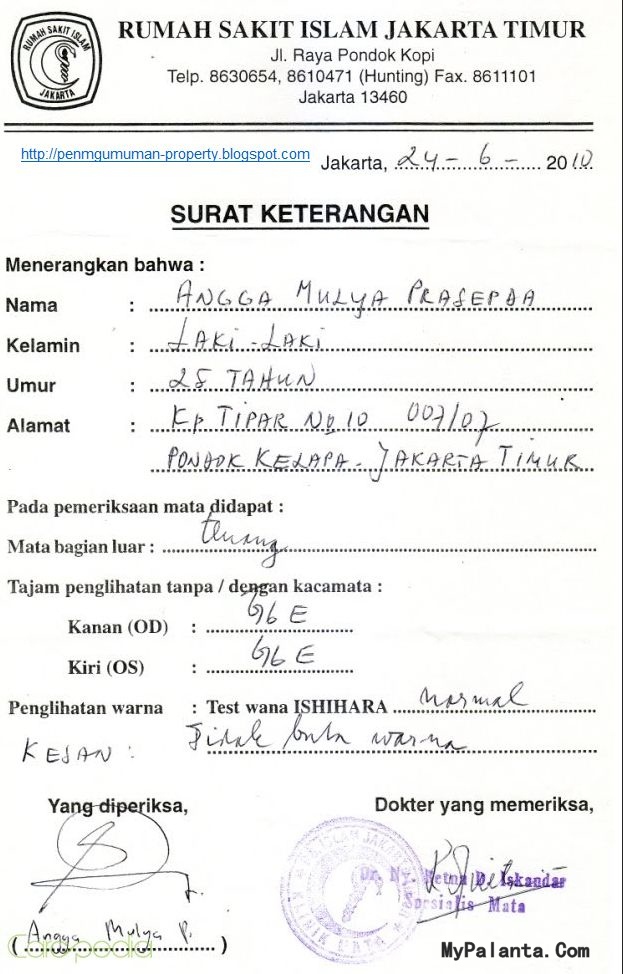 RUMAH SAKIT ISLAM
JAKARTA
RUMAH SAKIT ISLAM JAKARTA TIMUR
Jl. Raya Pondok Kopi
Telp. 8630654, 8610471 (Hunting) Fax. 8611101
Jakarta 13460
http://penmgumuman-property.blogspot.com
Jakarta, 24 - 6 - 2010
SURAT KETERANGAN
Menerangkan bahwa :
Nama : ANGGA MULYA PRASEPDA
Kelamin : LAKI - LAKI
Umur : 25 TAHUN
Alamat : Kp TIPAR No 10 007/07
PONDOK KELAPA - JAKARTA TIMUR
Pada pemeriksaan mata didapat :
Mata bagian luar : tenang
Tajam penglihatan tanpa / dengan kacamata :
Kanan (OD) : 6/6 E
Kiri (OS) : 6/6 E
Penglihatan warna : Test wana ISHIHARA normal
KESAN : Tidak buta warna
Yang diperiksa,
Dokter yang memeriksa,
Dr. Ny. Retna D. Iskandar
Spesialis Mata
KLINIK MATA
(Angga Mulya P.)
Carapedia
MyPalanta.Com